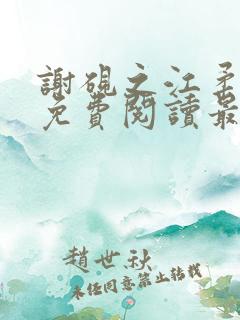 謝硯之江柔
免費閱讀最
趙世秋
未經同意禁止轉載